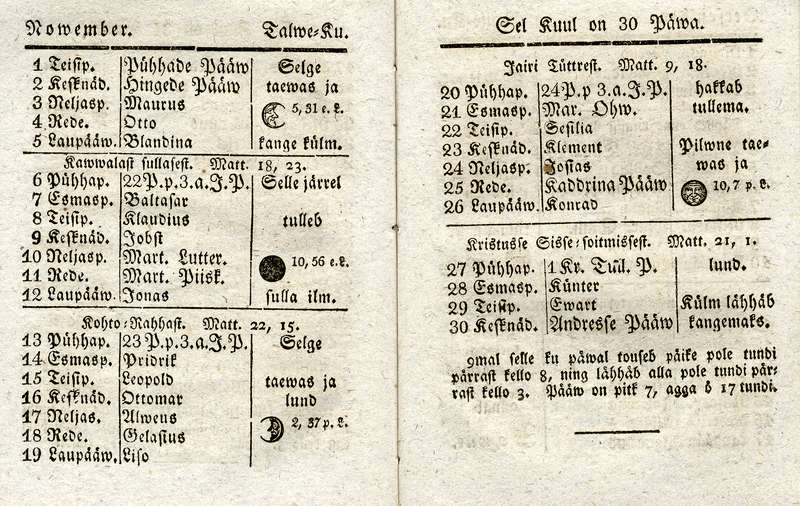 Nowember. Talwe-Ku.
1 Teisip. Pühhade Pääw Selge
2 Kesknäd. Hingede Pääw taewas ja
3 Neljasp. Maurus
4 Rede. Otto 5, 31 e. L.
5 Laupääw. Blandina kange külm.
Kawwalast sullasest. Matt. 18, 23.
6 Pühhap. 22P.p.3.a.J.P. Selle järrel
7 Esmasp. Baltasar
8 Teisip. Klaudius tulleb
9 Kesknäd. Jobst
10 Neljasp. Mart. Lutter. 10, 56 e. L.
11 Rede. Mart. Piisk.
12 Laupääw. Jonas sulla ilm.
Kohto-Rahhast. Matt. 22, 15.
13 Pühhap. 23P.p.3.a.J.P. Selge
14 Esmasp. Pridrik
15 Teisip. Leopold taewas ja
16 Kesknäd. Ottomar lund
17 Neljas. Alweus 2, 37 p. L.
18 Rede. Gelasius
19 Laupääw. Liso
Sel Kuul on 30 Päwa.
Jairi Tüttrest. Matt. 9, 18.
20 Pühhap. 24P.p 3.a.J.P. hakkab
21 Esmasp. Mar. Ohw. tullema.
22 Teisip. Sesilia
23 Kesknäd. Klement Pilwne tae-
24 Neljasp. Josias was ja
25 Rede. Kaddrina Pääw 10, 7 p. L.
26 Laupääw. Konrad
Kristusse Sisse-soitmissest. Matt. 21, 1.
27 Pühhap. 1 Kr. Tull. P. lund.
28 Esmasp. Künter
29 Teisip. Ewart Külm lähhäb
30 Kesknäd. Andresse Pääw kangemaks.
9mal selle ku päwal touseb päike pole tundi
pärrast kello 8, ning lähhäb alla pole tundi pär-
rast kello 3. Pääw on pitk 7, agga ö 17 tundi.